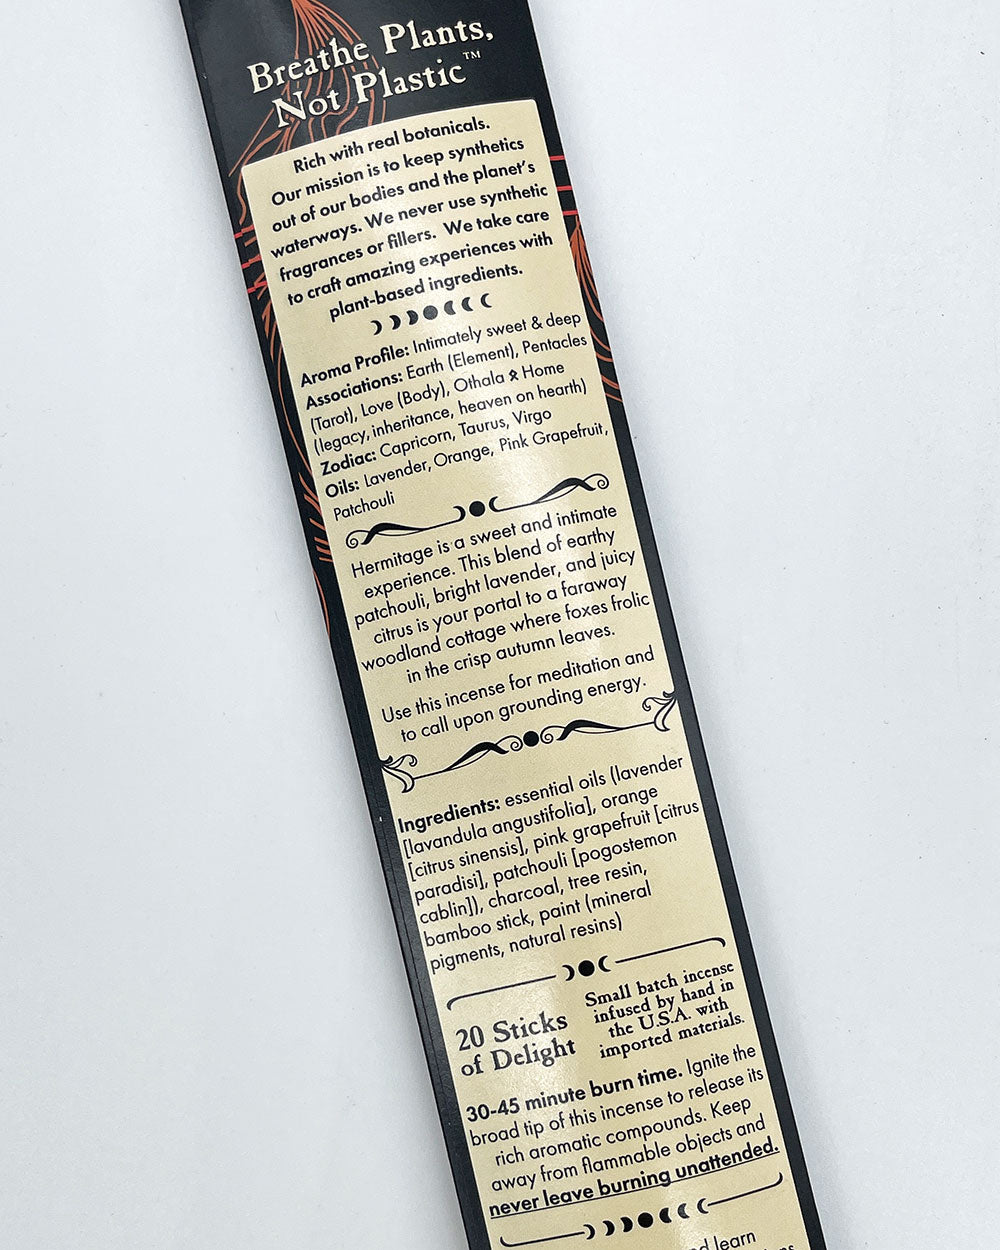 Breathe Plants,
Not Plastic™
Rich with real botanicals.
Our mission is to keep synthetics
out of our bodies and the planet's
waterways. We never use synthetic
fragrances or fillers. We take care
to craft amazing experiences with
plant-based ingredients.
Aroma Profile: Intimately sweet & deep
Associations: Earth (Element), Pentacles
(Tarot), Love (Body), Othala ᛟ Home
(legacy, inheritance, heaven on hearth)
Zodiac: Capricorn, Taurus, Virgo
Oils: Lavender, Orange, Pink Grapefruit,
Patchouli
Hermitage is a sweet and intimate
experience. This blend of earthy
patchouli, bright lavender, and juicy
citrus is your portal to a faraway
woodland cottage where foxes frolic
in the crisp autumn leaves.
Use this incense for meditation and
to call upon grounding energy.
Ingredients: essential oils (lavender
[lavandula angustifolia], orange
[citrus sinensis], pink grapefruit [citrus
paradisi], patchouli [pogostemon
cablin]), charcoal, tree resin,
bamboo stick, paint (mineral
pigments, natural resins)
20 Sticks
of Delight
Small batch incense
infused by hand in
the U.S.A. with
imported materials.
30-45 minute burn time. Ignite the
broad tip of this incense to release its
rich aromatic compounds. Keep
away from flammable objects and
never leave burning unattended.
learn